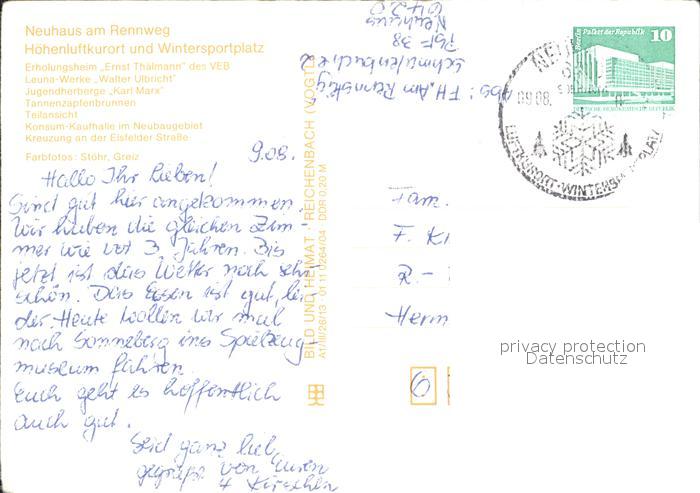 Neuhaus am Rennweg
Höhenluftkurort und Wintersportplatz
Erholungsheim „Ernst Thälmann" des VEB
Leuna-Werke „Walter Ulbricht"
Jugendherberge „Karl Marx"
Tannenzapfenbrunnen
Teilansicht
Konsum-Kaufhalle im Neubaugebiet
Kreuzung an der Eisfelder Straße
Farbfotos: Stöhr, Greiz
9.08.
Hallo Ihr Lieben!
Sind gut hier angekommen.
Wir haben die gleichen Zim-
mer wie vor 3 Jahren. Bis
jetzt ist das Wetter noch sehr
schön. Das Essen ist gut, lei-
der. Heute wollen wir mal
nach Sonneberg ins Spielzeug-
museum fahren.
Euch geht es hoffentlich
auch gut.
Seid ganz lieb
gegrüßt von Euren
4 Kirschen
BILD UND HEIMAT · REICHENBACH (VOGTL
A1/III/26/13 01 11 0264/04 DDR 0,20 M
Abs: FH. Am Rennsteig
Schmalenbuche 2
PSF 38
Neuhaus
6420
Fam.
F. Ki
R.-
Herm
6
Berlin Palast der Republik
10
DEUTSCHE DEMOKRATISCHE REPUBLIK
09.08.
LUFTKURORT · WINTERSPORTPLATZ
privacy protection
Datenschutz